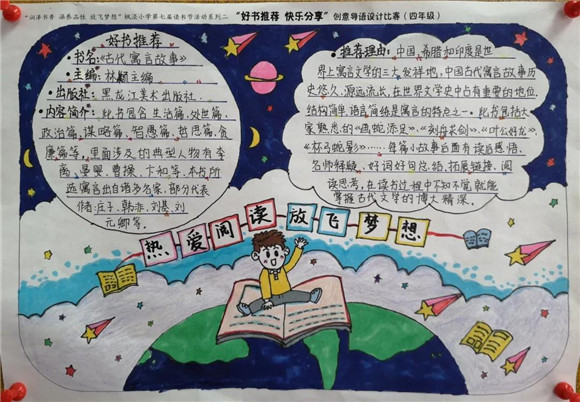 “润泽书香 涵养品性 放飞梦想”枫泾小学第七届读书节活动系列二 “好书推荐 快乐分享”创意导语设计比赛（四年级）
好书推荐
书名:《古代寓言故事》
主编:林麟主编
出版社:黑龙江美术出版社
内容简介:此书包含生活篇、处世篇、
政治篇、谋略篇、智愚篇、哲思篇、贪
廉篇等,里面涉及的典型人物有李
离、晏婴、曹操、卞和等。本书所
选寓言出自诸多名家,部分代表
作者:庄子、韩非、刘基、刘
元卿等。
推荐理由:中国、希腊和印度是世
界上寓言文学的三大发祥地,中国古代寓言故事历
史悠久,源远流长,在世界文学史中占有重要的地位,
结构简单,语言简练是寓言的特点之一。此书包括大
家熟悉的《画蛇添足》、《刻舟求剑》、《叶公好龙》、
《杯弓蛇影》……每篇小故事后面有读后感悟、
名师解疑、好词好句总结、拓展链接、阅
读思考,在读书过程中不知不觉就能
掌握古代文学的博大精深。
热爱阅读放飞梦想